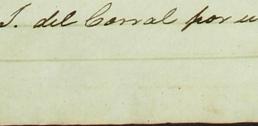 J. del Corral por u